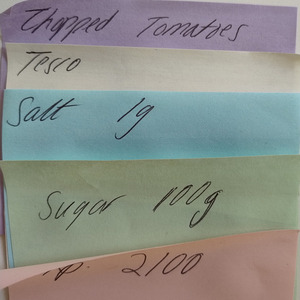 Chopped Tomatoes
Tesco
Salt 1g
Sugar 100g
2100